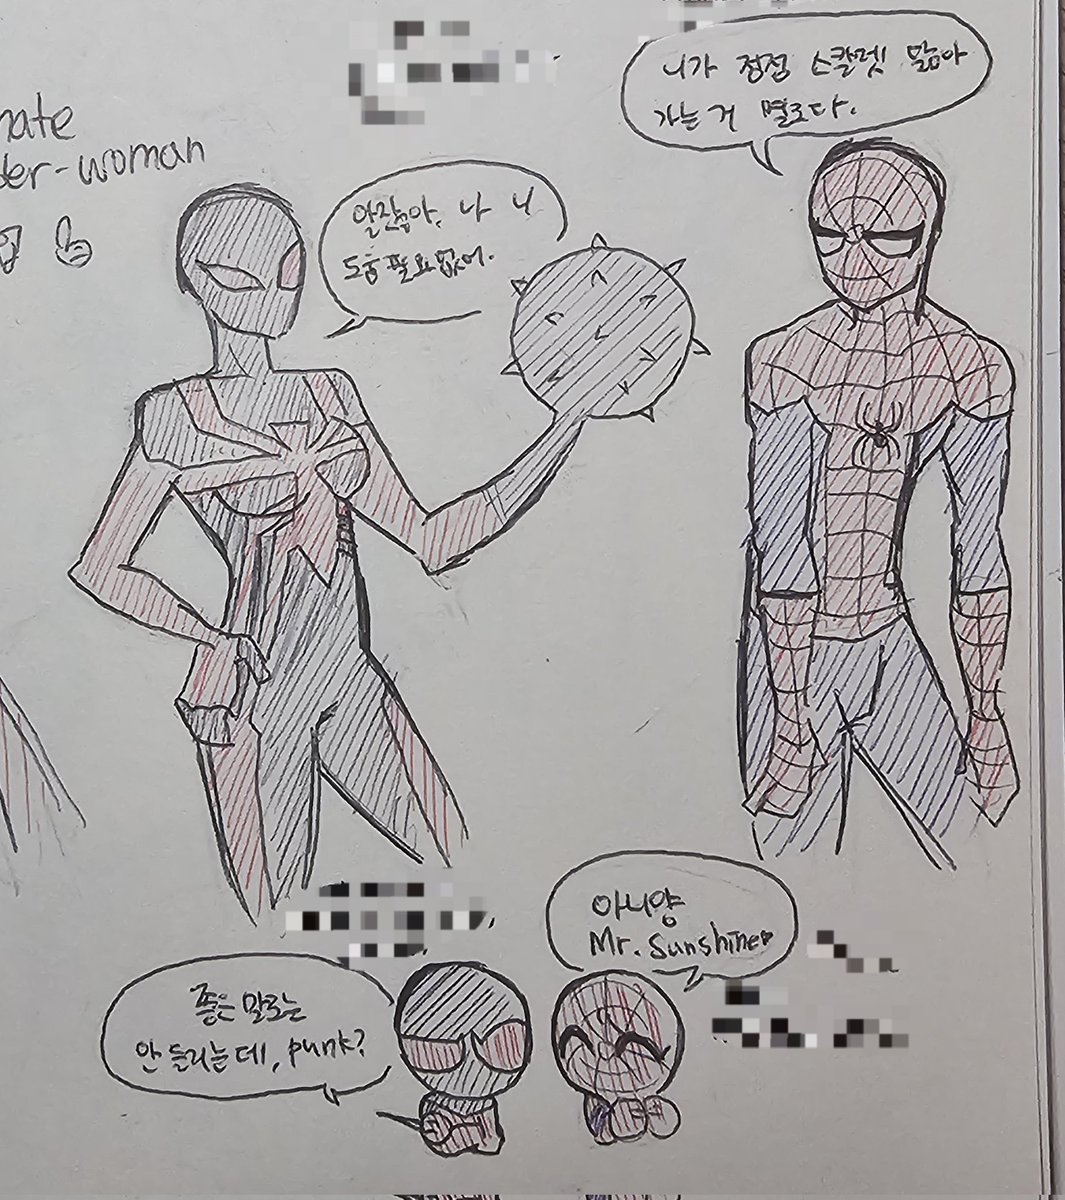 nate
der-woman
니가 점점 스칼렛 닮아
가는 거 별로다.
알잖아, 나 니
도움 필요없어.
아니양
Mr. Sunshine♥
좋은 말로는
안 들리는데, punk?